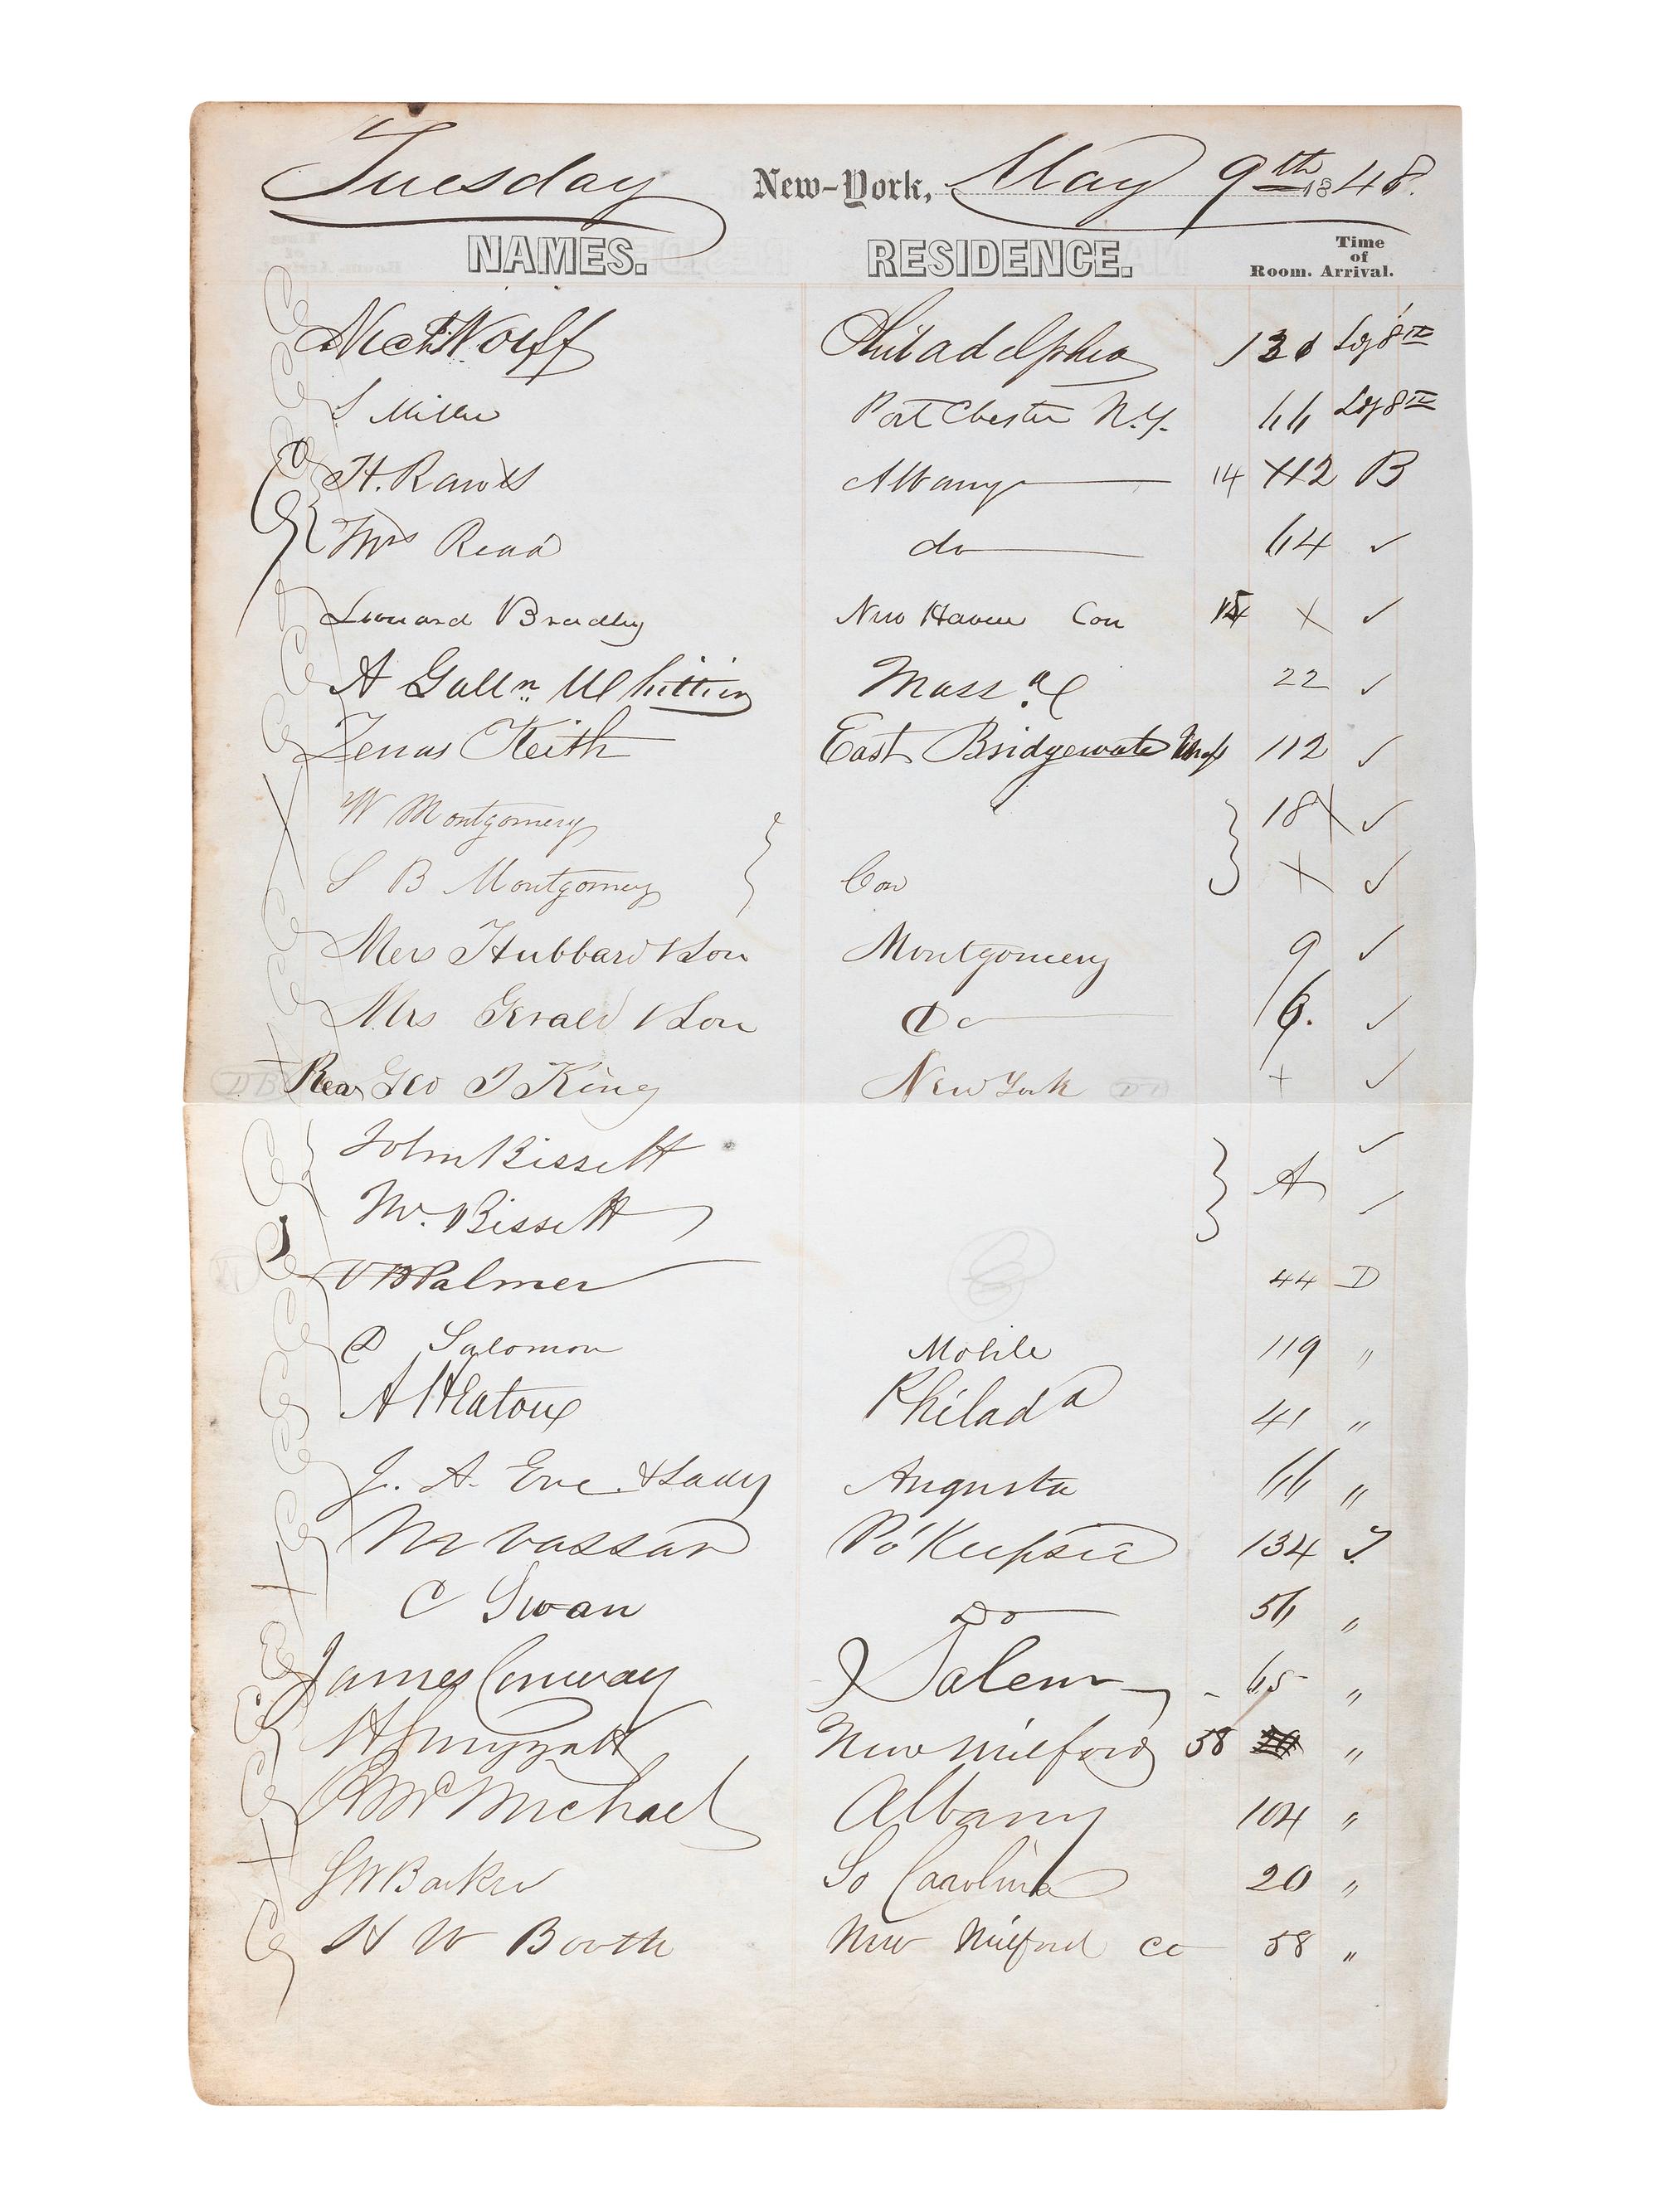 Tuesday New-York, May 9th 1848.
NAMES. RESIDENCE. Room. Time of Arrival.
Wolff Philadelphia 130
S Miller Port Chester N.Y. 66
H. Rawls Albany 14 112 B
Mrs Read do 64 ✓
Leonard Bradley New Haven Con X ✓
A Galln Whittier Massa 22 ✓
Zenas Keith East Bridgewater Mass 112 ✓
W Montgomery 18 X ✓
S B Montgomery Con X ✓
Mrs Hubbard & Son Montgomery 9 ✓
Mrs Gerald & Son Do 16. ✓
Rev Geo I King New York + ✓
John Bissett A ✓
M. Bissett ✓
V B Palmer 44 D
D Salomon Mobile 119 "
A H Eaton Philada 41 "
J. A. Eve & Lady Augusta 66 "
M Vassar Po'Keepsie 134 T.
C Swan Do 56 "
James Conway Salem 65 "
New Milford 58 "
McMichael Albany 104 "
Barker So Carolina 20 "
H W Booth New Milford Ct 58 "